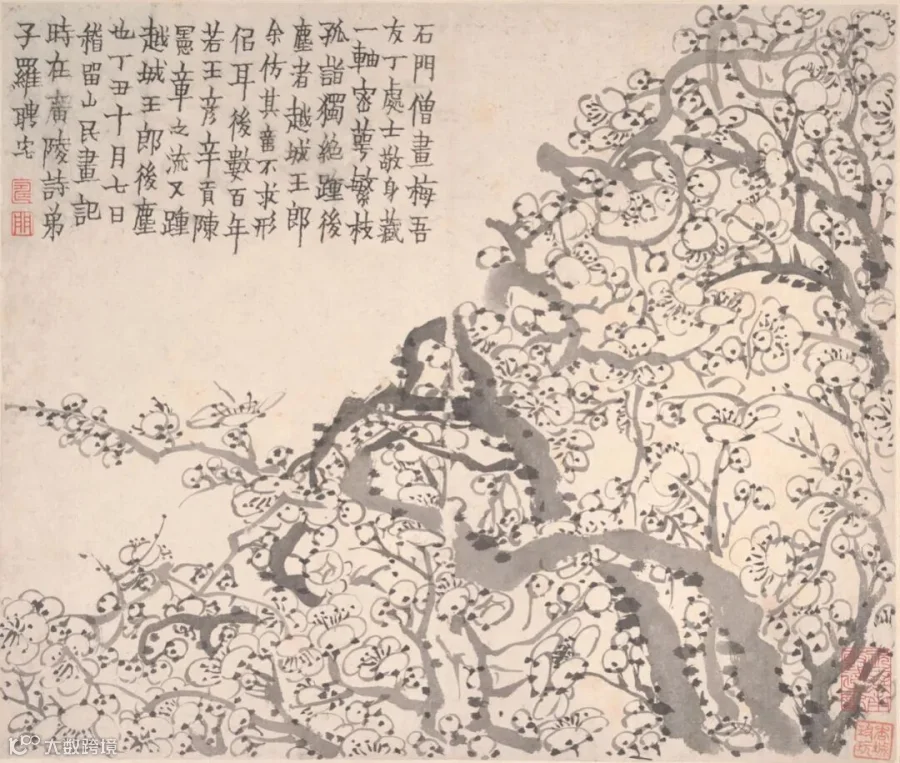 石門僧畫梅吾
友丁處士敬身藏
一軸家蕚繁枝
孤詣獨絶踵後
塵者越城王郎
余仿其意不求形
侣耳後數百年
若王彦辛貢陳
憲章之流又踵
越城王郎後塵
也丁丑十月七日
稽留山民畫記
時在廣陵詩弟
子羅聘
大數跨境